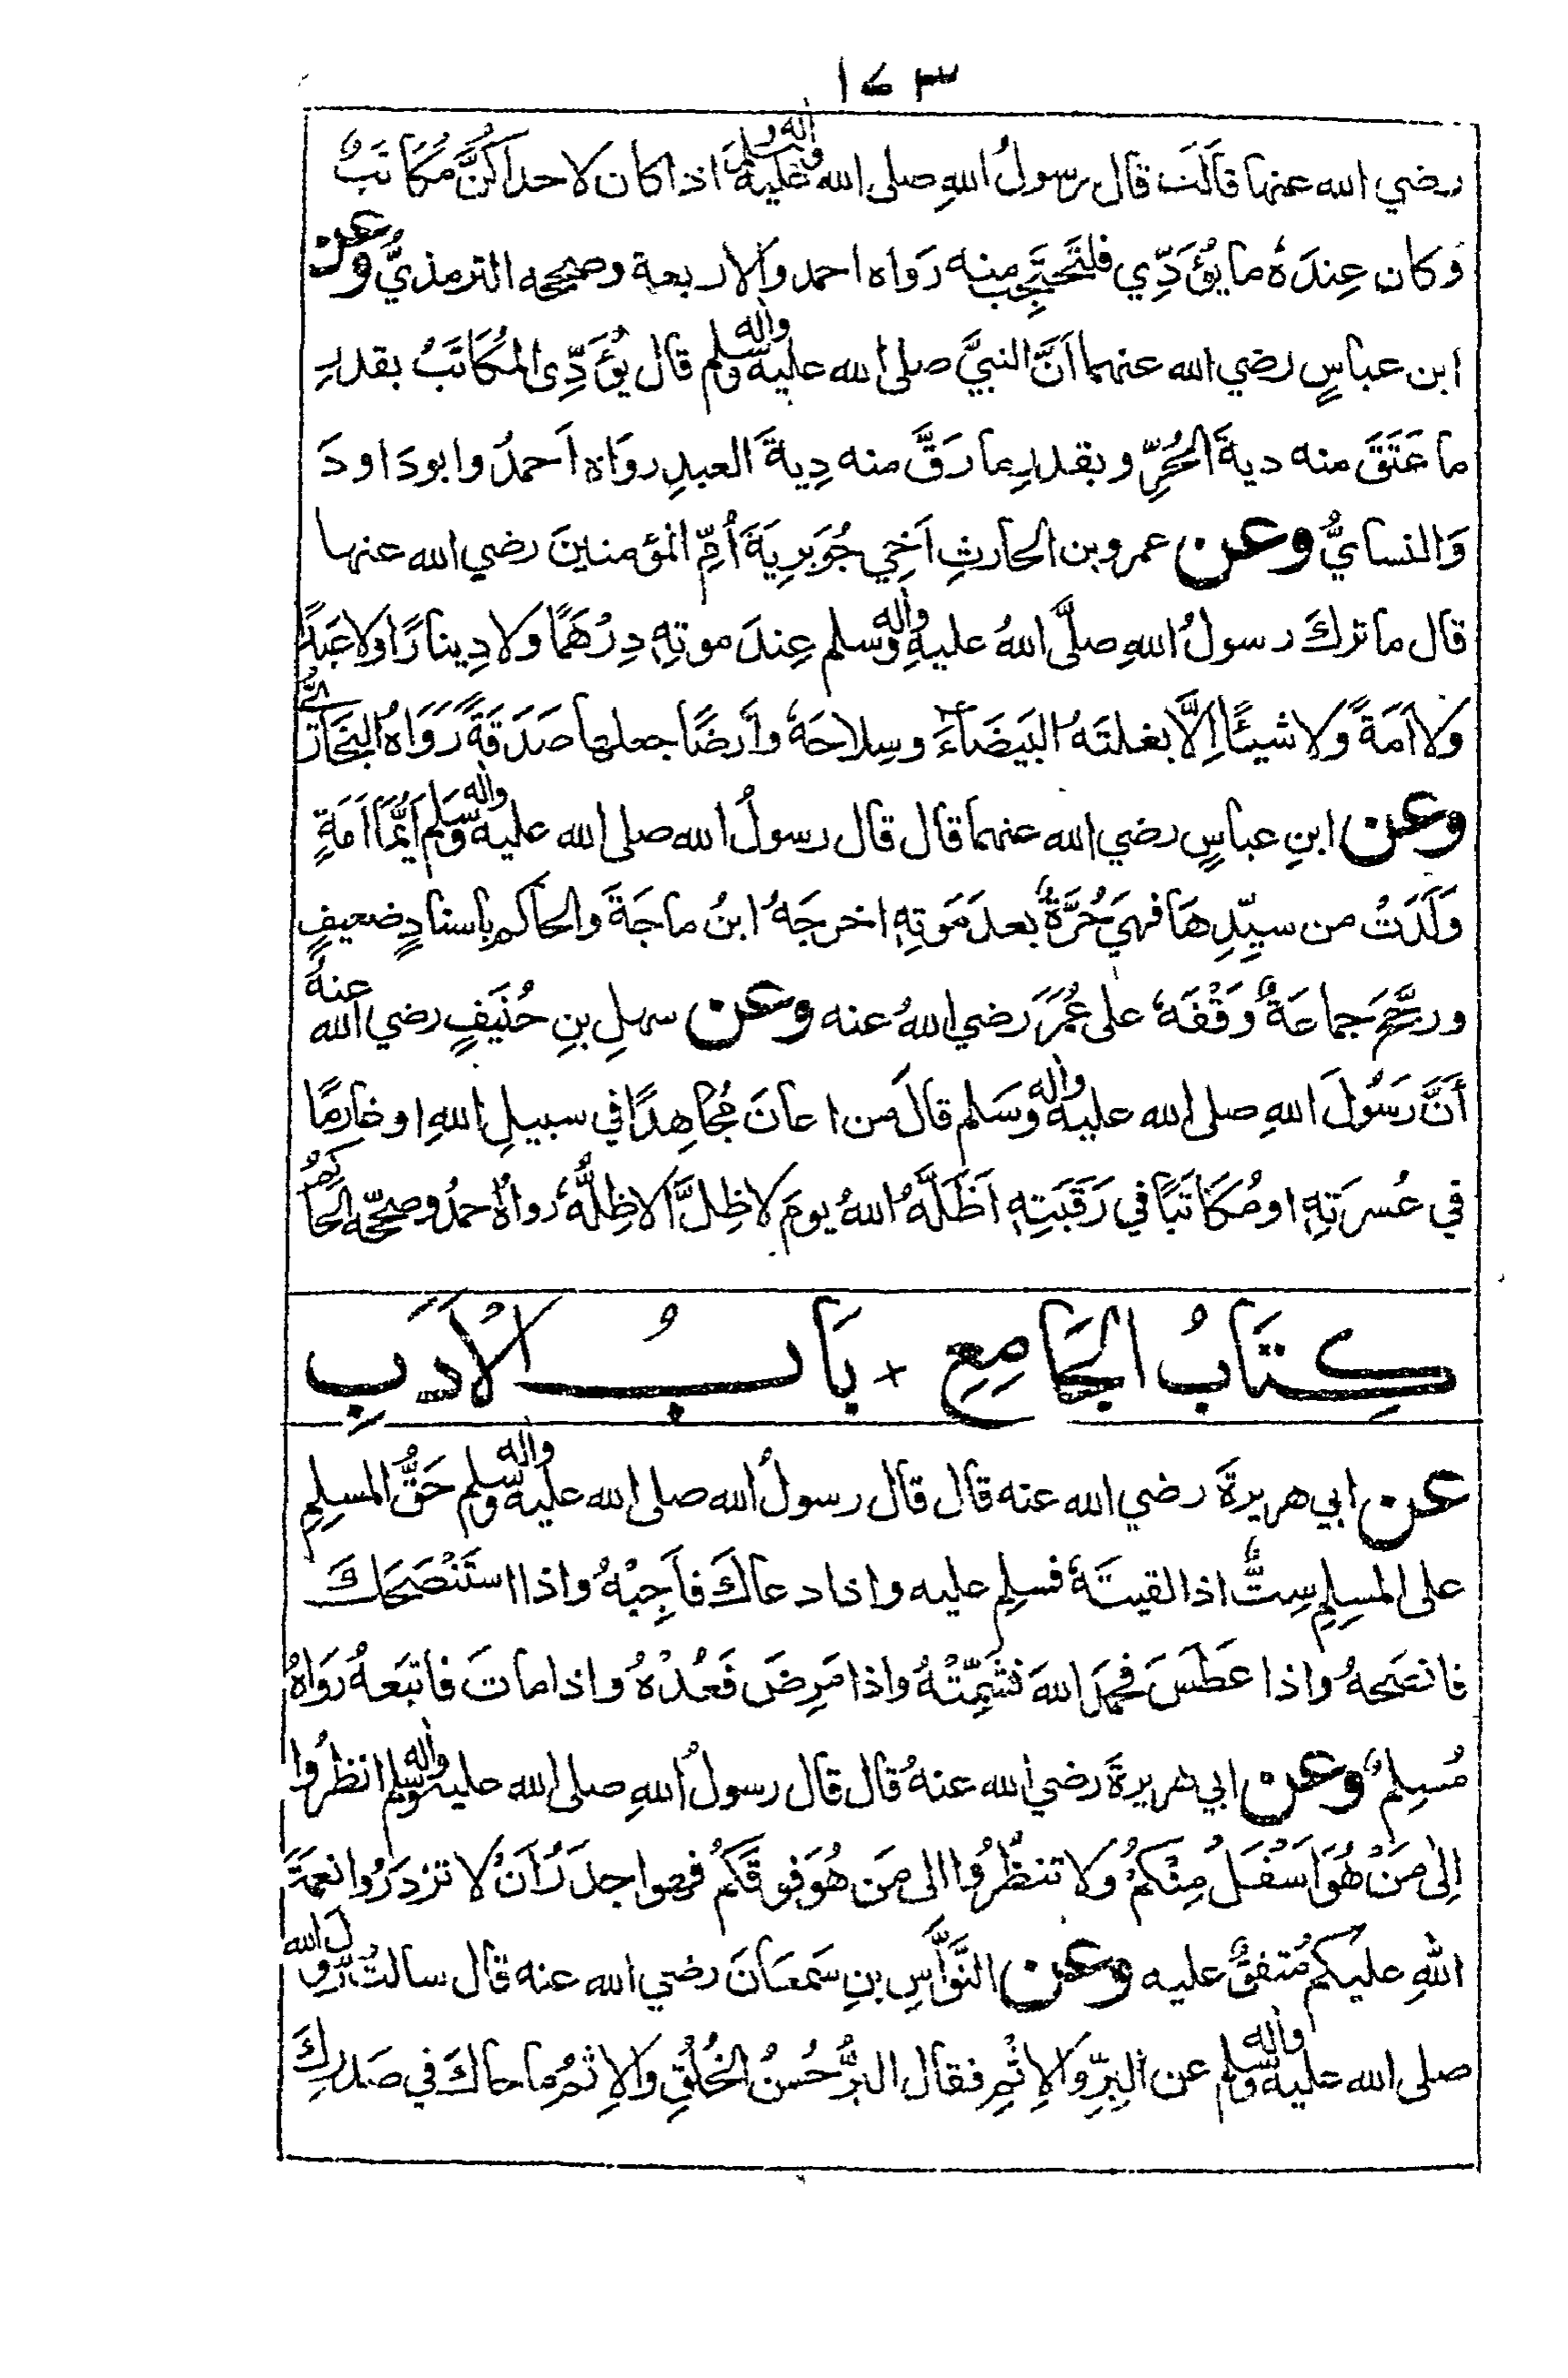 ١٤٣
رضي الله عنها قالَت قال رسولُ اللهِ صلى الله عليه واٰله وسلم اذا كان لاحداكُنَّ مُكَاتَبٌ
وَكان عِندَهٗ ما يُؤَدِّي فلتَحتَجِب منه رَواه احمد والاربعة وصححه الترمذيُّ وعن
ابن عباسٍ رضي الله عنهما اَنَّ النبيَّ صلى الله عليه واٰله وسلم قال يُؤَدِّى المُكَاتَبُ بقدرِ
ما عَتَقَ منه ديةَ الحُرِّ وبقدرِ ما رَقَّ منه دِيةَ العبدِ رواه اَحمدُ وابوداودَ
وَالنسايُّ وعن عمرو بن الحارثِ اَخِي جُوَيرِيَةَ اُمِّ المؤمنينَ رضي الله عنها
قال ما تركَ رسولُ اللهِ صلَّى اللهُ عليهِ واٰله وسلم عِندَ موتِهٖ دِرْهَمًا ولا دِينارًا ولا عَبدًا
ولا اَمَةً وَّلا شيئًا اِلَّا بغلتَهُ البَيضَآءَ وسِلاحَهٗ وأَرضًا جعلها صَدَقَةً رَّوَاهُ البُخَارِيُّ
وعن ابنِ عباسٍ رضي الله عنهما قال قال رسولُ الله صلى الله عليه واٰله وسَلم اَيُّمَا اَمَةٍ
وَلَدَتْ من سيِّدِهَا فهيَ حُرَّةٌ بعدَ مَوتِهٖ اخرجَهُ ابنُ ماجَةَ والحاكم باسنادٍ ضعيفٍ
ورجَّحَ جماعَةٌ وَقْفَهٗ على عُمَرَ رَضي اللهُ عنه وعن سهلِ بنِ حُنَيفٍ رضي الله عنهُ
أَنَّ رَسُولَ اللهِ صلى الله عليه واٰله وسَلم قالَ من اعانَ مُجَاهِدًا في سبيلِ اللهِ او غارِمًا
في عُسرَتِهٖ او مُكَاتَبًا في رَقَبَتِهٖ اَظَلَّهُ اللهُ يومَ لا ظِلَّ اِلا ظِلُّهٗ رواهُ احمدُ وصحّحه الحاكمُ
كِتَابُ الجَامِعِ + بَابُ الْاَدَبِ
عن ابي هريرةَ رضي الله عنه قال قال رسولُ الله صلى الله عليه واٰله وسلم حَقُّ المسلِمِ
على المسلِمِ سِتٌّ اذا لقيتَهٗ فسلِم عليه واذا دعاكَ فاَجِبْهُ واذا استَنْصَحَكَ
فانصحهُ واذا عَطَسَ فحمدَ اللهَ فشَمِّتْهُ واذا مَرِضَ فَعُدْهُ واذا ماتَ فاتبَعهُ رَوَاهُ
مُسلِمٌ وعن ابي هريرةَ رضي الله عنهُ قال قال رسولُ اللهِ صلى الله عليه واٰله وسلم انظُرُوا
اِلى مَنْ هُوَ اَسْفَلُ مِنْكُمْ وَلا تنظُرُوا الى مَن هُوَ فوقَكُم فهو اجدَرُ اَنْ لا تزدَرُوا نعمَةَ
اللهِ عليكم مُتفقٌ عليه وعن النَّوَّاسِ بنِ سَمعَانَ رضي الله عنه قال سالتُ رسولَ الله
صلى الله عليه واٰله وسلم عن البِرِّ وَالاِثْمِ فقال البِرُّ حُسنُ الخُلُقِ والاِثمُ ما حاكَ في صَدرِكَ